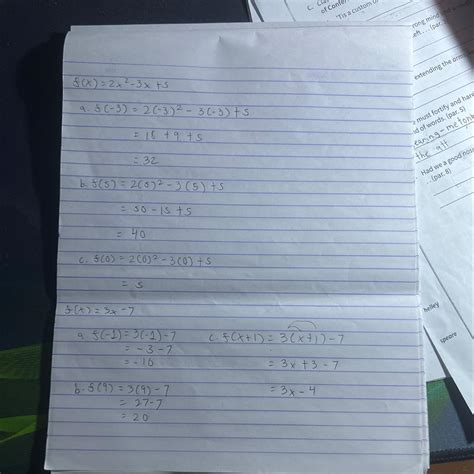 f(x) = 2x² - 3x + 5
a. f(-3) = 2(-3)² - 3(-3) + 5
= 18 + 9 + 5
= 32
b. f(5) = 2(5)² - 3(5) + 5
= 50 - 15 + 5
= 40
c. f(0) = 2(0)² - 3(0) + 5
= 5
f(x) = 3x - 7
a. f(-1) = 3(-1) - 7
= -3 - 7
= -10
b. f(9) = 3(9) - 7
= 27 - 7
= 20
c. f(x+1) = 3(x+1) - 7
= 3x + 3 - 7
= 3x - 4
of Confer
'Tis a custom o
rong mind
extending the
must fortify and
d of words. (par. 5)
the
Had we a good
(par. 8)
helley